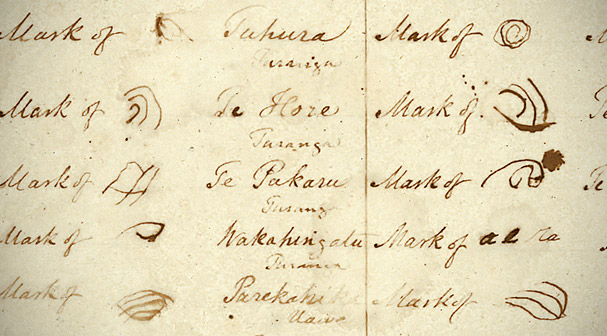 Mark of Tuhura Mark of
Turanga
Mark of Te Hore Mark of Te
Turanga
Mark of Te Pakaru Mark of Te
Turanga
Mark of Wakahingatu Mark of
Turanga
Mark of Parekahika Mark of
Uawa